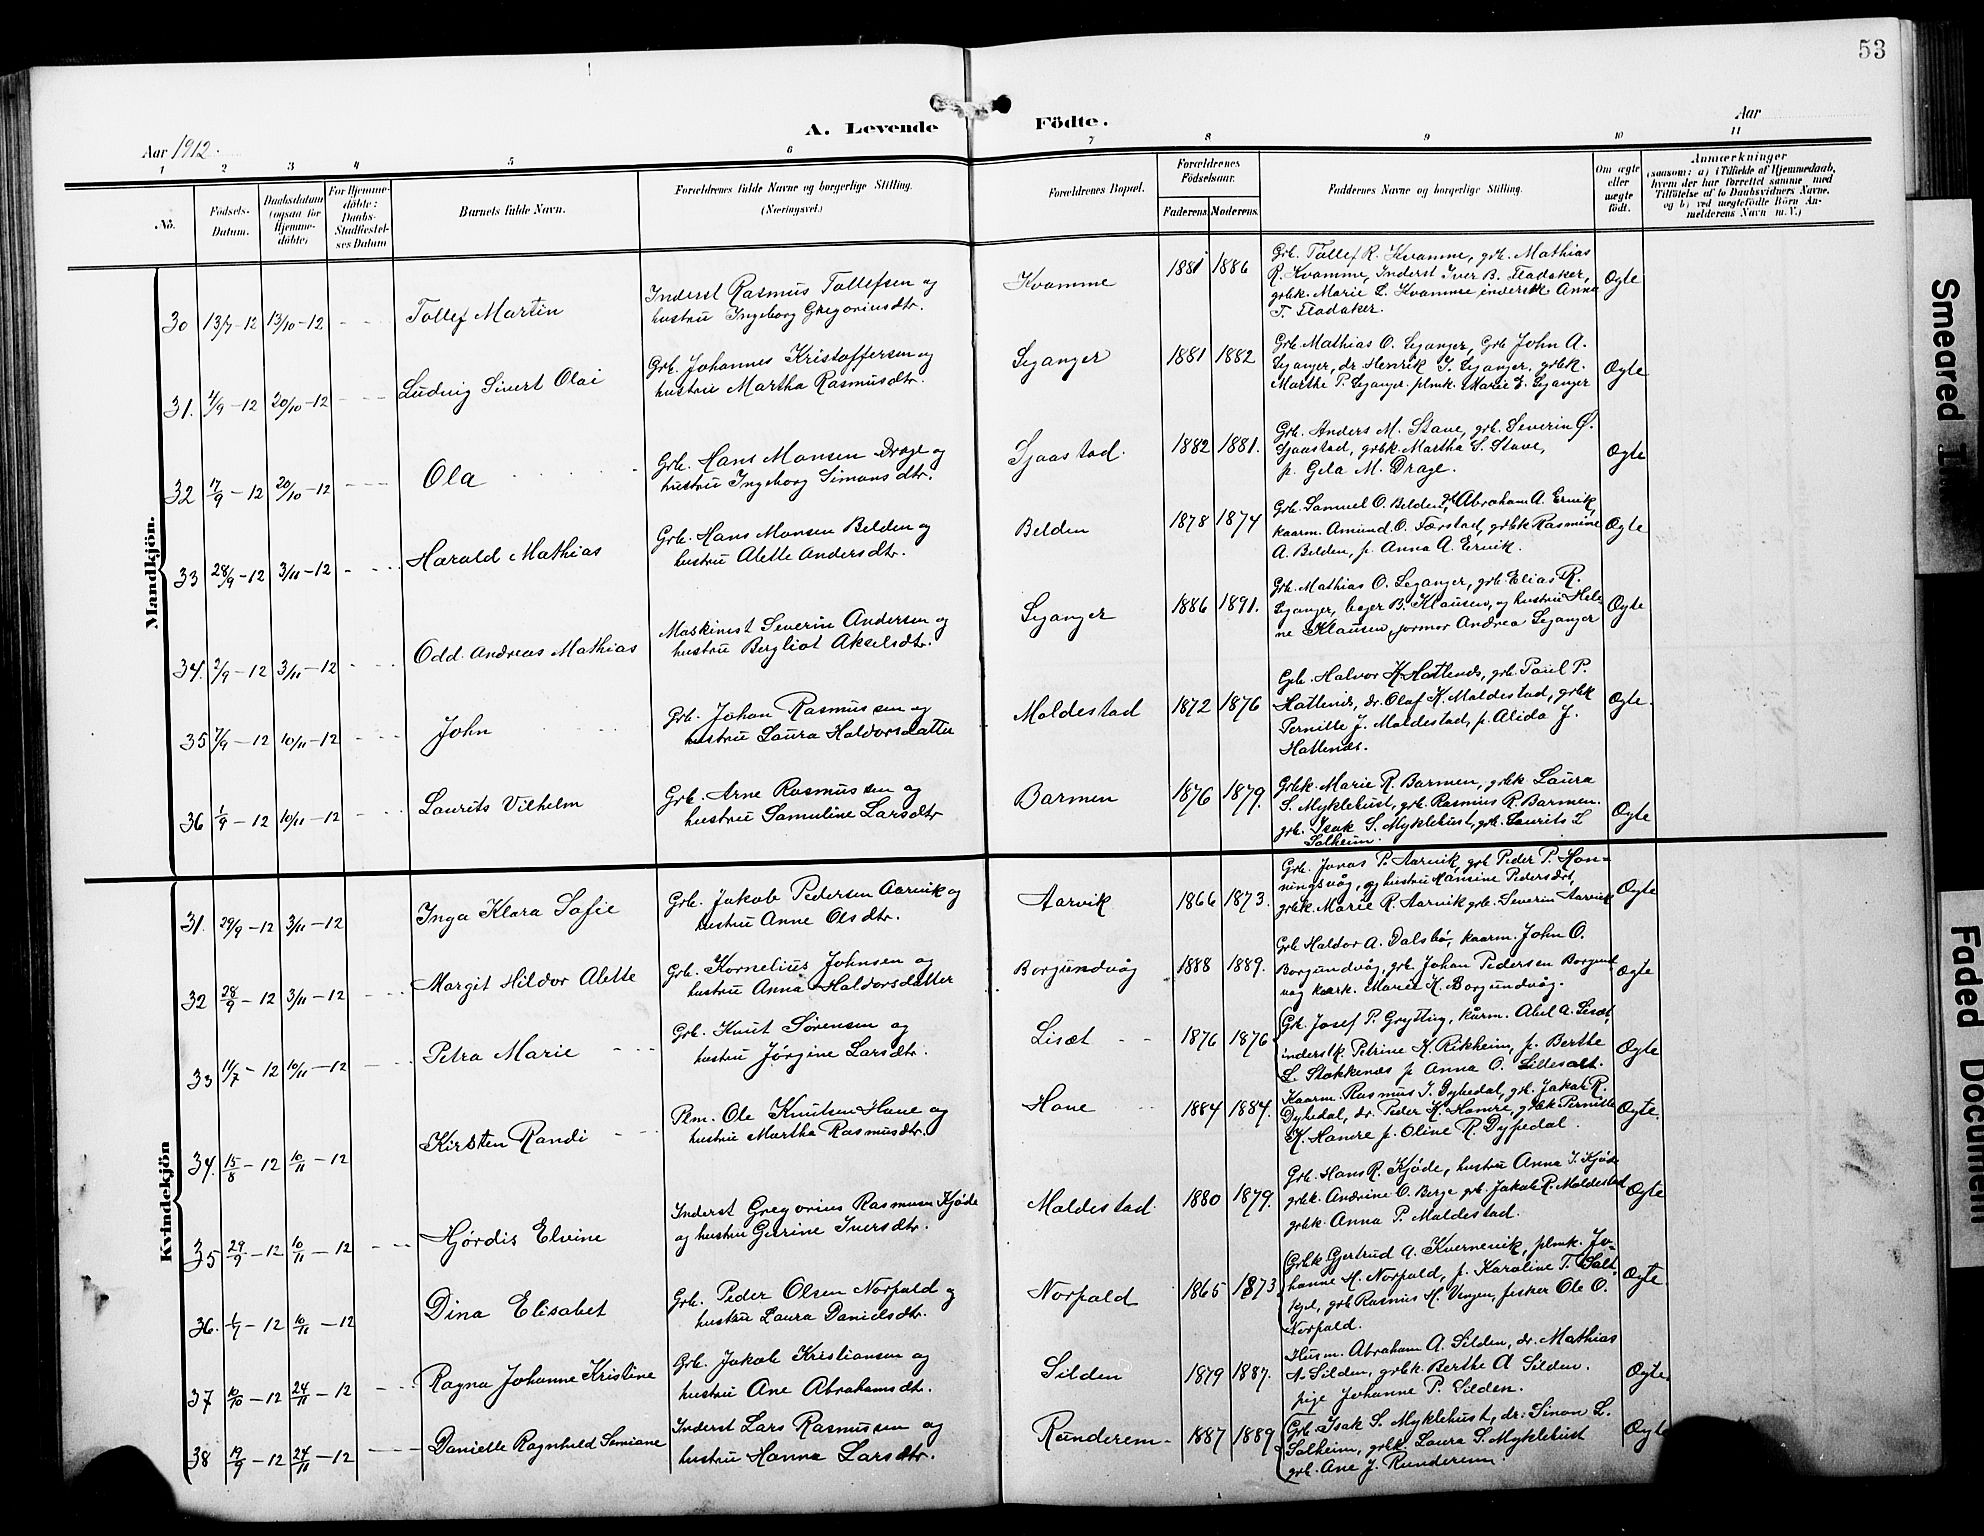 53
A. Levende Födte.
Aar 1912.
Aar
1 2 3 4 5 6 7 8 9 10 11
No.
Födsels-
Datum.
Daabsdatum
(ogsaa for
Hjemme-
döbte)
For Hjemme-
döbte:
Daabs-
Stadfæstel-
ses Datum
Barnets fulde Navn.
Forældrenes fulde Navne og borgerlige Stilling.
(Næringsvei.)
Forældrenes Bopæl.
Forældrenes
Födselsaar.
Faderens. Moderens.
Faddernes Navne og borgerlige Stilling.
Om ægte
eller
uægte
födt.
Anmærkninger
(saasom: a) i Tilfælde af Hjemmedaab,
hvem der har forrettet samme med
Tilföielse af to Daabsvidners Navne,
og b) ved uægtefödte Börn An-
melderens Navn m.V.)
Mandkjön.
30 13/7-12 13/10-12 Tollef Martin
Inderst Rasmus Tollefsen og
hustru Ingeborg Gregoriusdtr.
Kvamme 1881 1886
Grb. Tollef R. Kvamme, grb. Mathias
R. Kvamme, Inderst Iver B. Fladaker,
grbk. Marie L. Kvamme inderstk Anna
T. Fladaker.
Ægte
31. 4/9-12 20/10-12 Ludvig Sivert Olai
Grb. Johannes Kristoffersen og
hustru Martha Rasmusdtr.
Leganger 1881 1882
Grb. Mathias O. Leganger, Grb John A.
Leganger, dr. Henrik J. Leganger, grbk.
Marthe P. Leganger. plmk. Marie J. Leganger
Ægte
32 17/9-12 20/10-12 Ola
Grb. Hans Monsen Drage og
hustru Ingeborg Simonsdtr.
Sjaastad. 1882 1881.
Grb. Anders M. Stave, grb. Severin Ø.
Sjaastad, grbk. Martha S. Stave,
p. Gela M. Drage.
Ægte
33 28/9-12 3/11-12 Harald Mathias
Grb. Hans Monsen Belden og
hustru Alette Andersdtr.
Belden 1878 1874
Grb. Samuel O. Belden, Abraham A. Ervik,
kaarm. Amund O. Færstad, grbk Rasmine
A. Belden, p. Anna A. Ervik.
Ægte
34. 2/9-12 3/11-12 Odd Andreas Mathias
Maskinist Severin Andersen og
hustru Bergliot Akselsdtr.
Leganger 1886 1891.
Grb. Mathias O. Leganger, grb. Elias R.
Leganger, B. Klausen, og hustru Hele
ne Klausen, jormor Andrea Leganger
Ægte
35 7/9-12 10/11-12 John
Grb. Johan Rasmussen og
hustru Laura Haldorsdatter
Maldestad 1872 1876
Grb. Halvor K. Hatlenes, grb. Paul P.
Hatlenes, dr. Olaf K. Maldestad, grbk
Pernille J. Maldestad, p. Alida J.
Hatlenes.
Ægte.
36 1/9-12 10/11-12 Laurits Vilhelm
Grb. Arne Rasmussen og
hustru Samuline Larsdtr
Barmen 1876 1879.
Grbk. Marie R. Barmen, grbk Laura
S. Myklebust, grb. Rasmus R. Barmen.
grb. Isak S. Myklebust, grb. Laurits L
Solheim.
Ægte
Kvindekjön
31. 29/9-12 3/11-12 Inga Klara Sofie
Grb. Jakob Pedersen Aarvik og
hustru Anne Olsdtr.
Aarvik 1866 1873.
Grb. Jonas P. Aarvik, grb Peder P. Hon-
ningsvåg, og hustru Hansine Pedersdtr,
grbk. Marie R. Aarvik grb. Severin Aarvik
Ægte
32 28/9-12 3/11-12 Margit Hildor Alette
Grb. Kornelius Johnsen og
hustru Anna Haldorsdatter
Borgundvåg 1888 1889.
Grb Haldor A. Dalsbø, kaarm. John O.
Borgundvåg, grb. Johan Pedersen Borgund
våg kaark. Marie K. Borgundvåg.
Ægte
33 11/7-12 10/11-12 Petra Marie
Grb. Knut Sørensen og
hustru Jørgine Larsdtr.
Lisæt 1876 1876
Grb. Josef P. Grytting, kårm. Abel A. Lisæt,
inderstk. Petrine K. Rikheim, p. Berthe
L. Stokkenes p Anna O. Lillesæt.
Ægte
34. 15/8-12 10/11-12 Kirsten Randi
Plm. Ole Knutsen Hove og
hustru Martha Rasmusdtr.
Hove 1884 1884.
Kaarm. Rasmus I. Dyhedal, grb. Jakob R.
Dyhedal, dr. Peder K. Hamre, grbk Pernille
K. Hamre p. Oline R. Dypedal.
Ægte.
35 29/9-12 10/11-12 Hjørdis Elvine
Inderst Gregorius Rasmusen Kjøde
og hustru Gurine Iversdtr.
Maldestad. 1880 1879.
Grb. Hans R. Kjøde, hustru Anna I. Kjøde
grbk. Andrine O. Berge grb. Jakob R. Maldestad
grbk. Anna P. Maldestad.
Ægte
36. 6/7-12 10/11-12 Dina Elisabet
Grb. Peder Olsen Norpald og
hustru Laura Danielsdtr.
Norpald 1865 1873
Grbk Gjertrud A. Kvernevik, plmk. Jo-
hanne H. Norpald, p. Karoline T. Salt-
kjel, grb Rasmus H. Vengen, fisker Ole O.
Norpald.
Ægte.
37 10/10-12 24/11-12 Ragna Johanne Kristine
Grb. Jakob Kristiansen og
hustru Ane Abrahamsdtr.
Silden 1879 1887.
Husm. Abraham A. Silden, dr. Mathias
A. Silden, grbk. Berthe A Silden.
pige Johanne P. Silden.
Ægte.
38 19/9-12 24/11-12 Danielle Ragnhild Semiane
Inderst Lars Rasmusen og
hustru Hanna Larsdtr.
Runderem 1887 1889
Grb. Isak S. Myklebust, dr. Simon L.
Solheim, grbk. Laura S. Myklebust
grb. Ane J. Runderem.
Ægte
Smeared
Faded Document